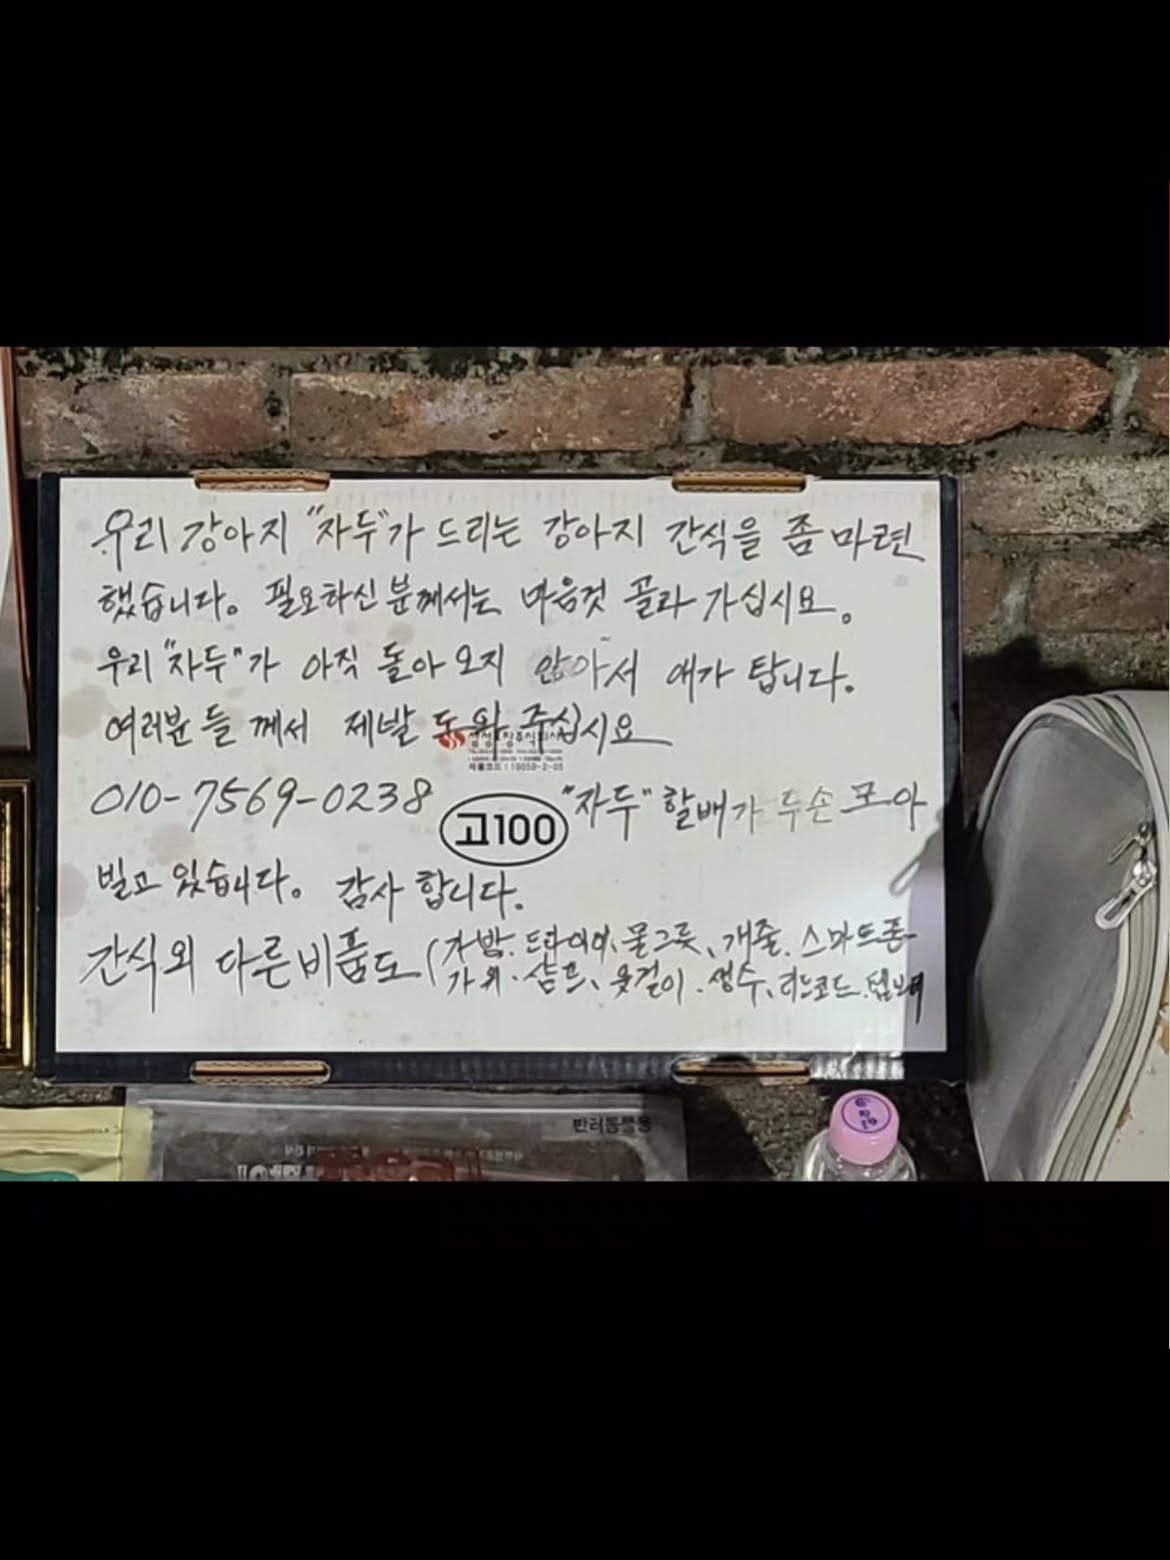 우리 강아지 "자두"가 드리는 강아지 간식을 좀 마련
했습니다. 필요하신 분께서는 마음것 골라 가십시요.
우리 "자두"가 아직 돌아 오지 않아서 애가 탑니다.
여러분 들 께서 제발 도와 주십시요
010-7569-0238 "자두" 할배가 두손 모아
고100
빌고 있습니다. 감사 합니다.
간식외 다른비품도 (가방. 드라이어, 물그릇, 개줄. 스마트폰
가위. 샴프, 옷걸이. 생수, 리드코드. 텀블러
반려동물용